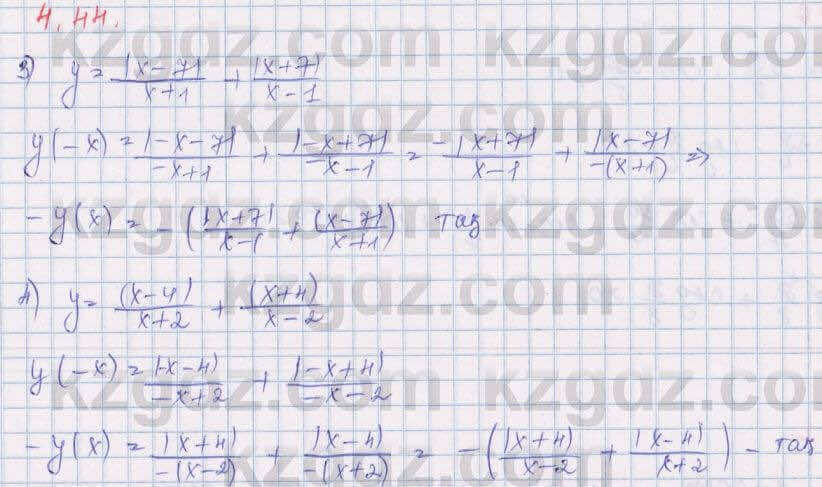 4.44.
3) y = |x-7|/x+1 + |x+7|/x-1
y(-x) = |-x-7|/-x+1 + |-x+7|/-x-1 = -|x+7|/x-1 + |x-7|/-(x+1) =>
-y(x) = -(|x+7|/x-1 + |x-7|/x+1) тақ
4) y = |x-4|/x+2 + |x+4|/x-2
y(-x) = |-x-4|/-x+2 + |-x+4|/-x-2
-y(x) = |x+4|/-(x-2) + |x-4|/-(x+2) = -(|x+4|/x-2 + |x-4|/x+2) - тақ
kzgdz.com kzgdz.com
kzgdz.com
kzgdz.com kzgdz.com
kzgdz.com
kzgdz.com kzgdz.com
kzgdz.com